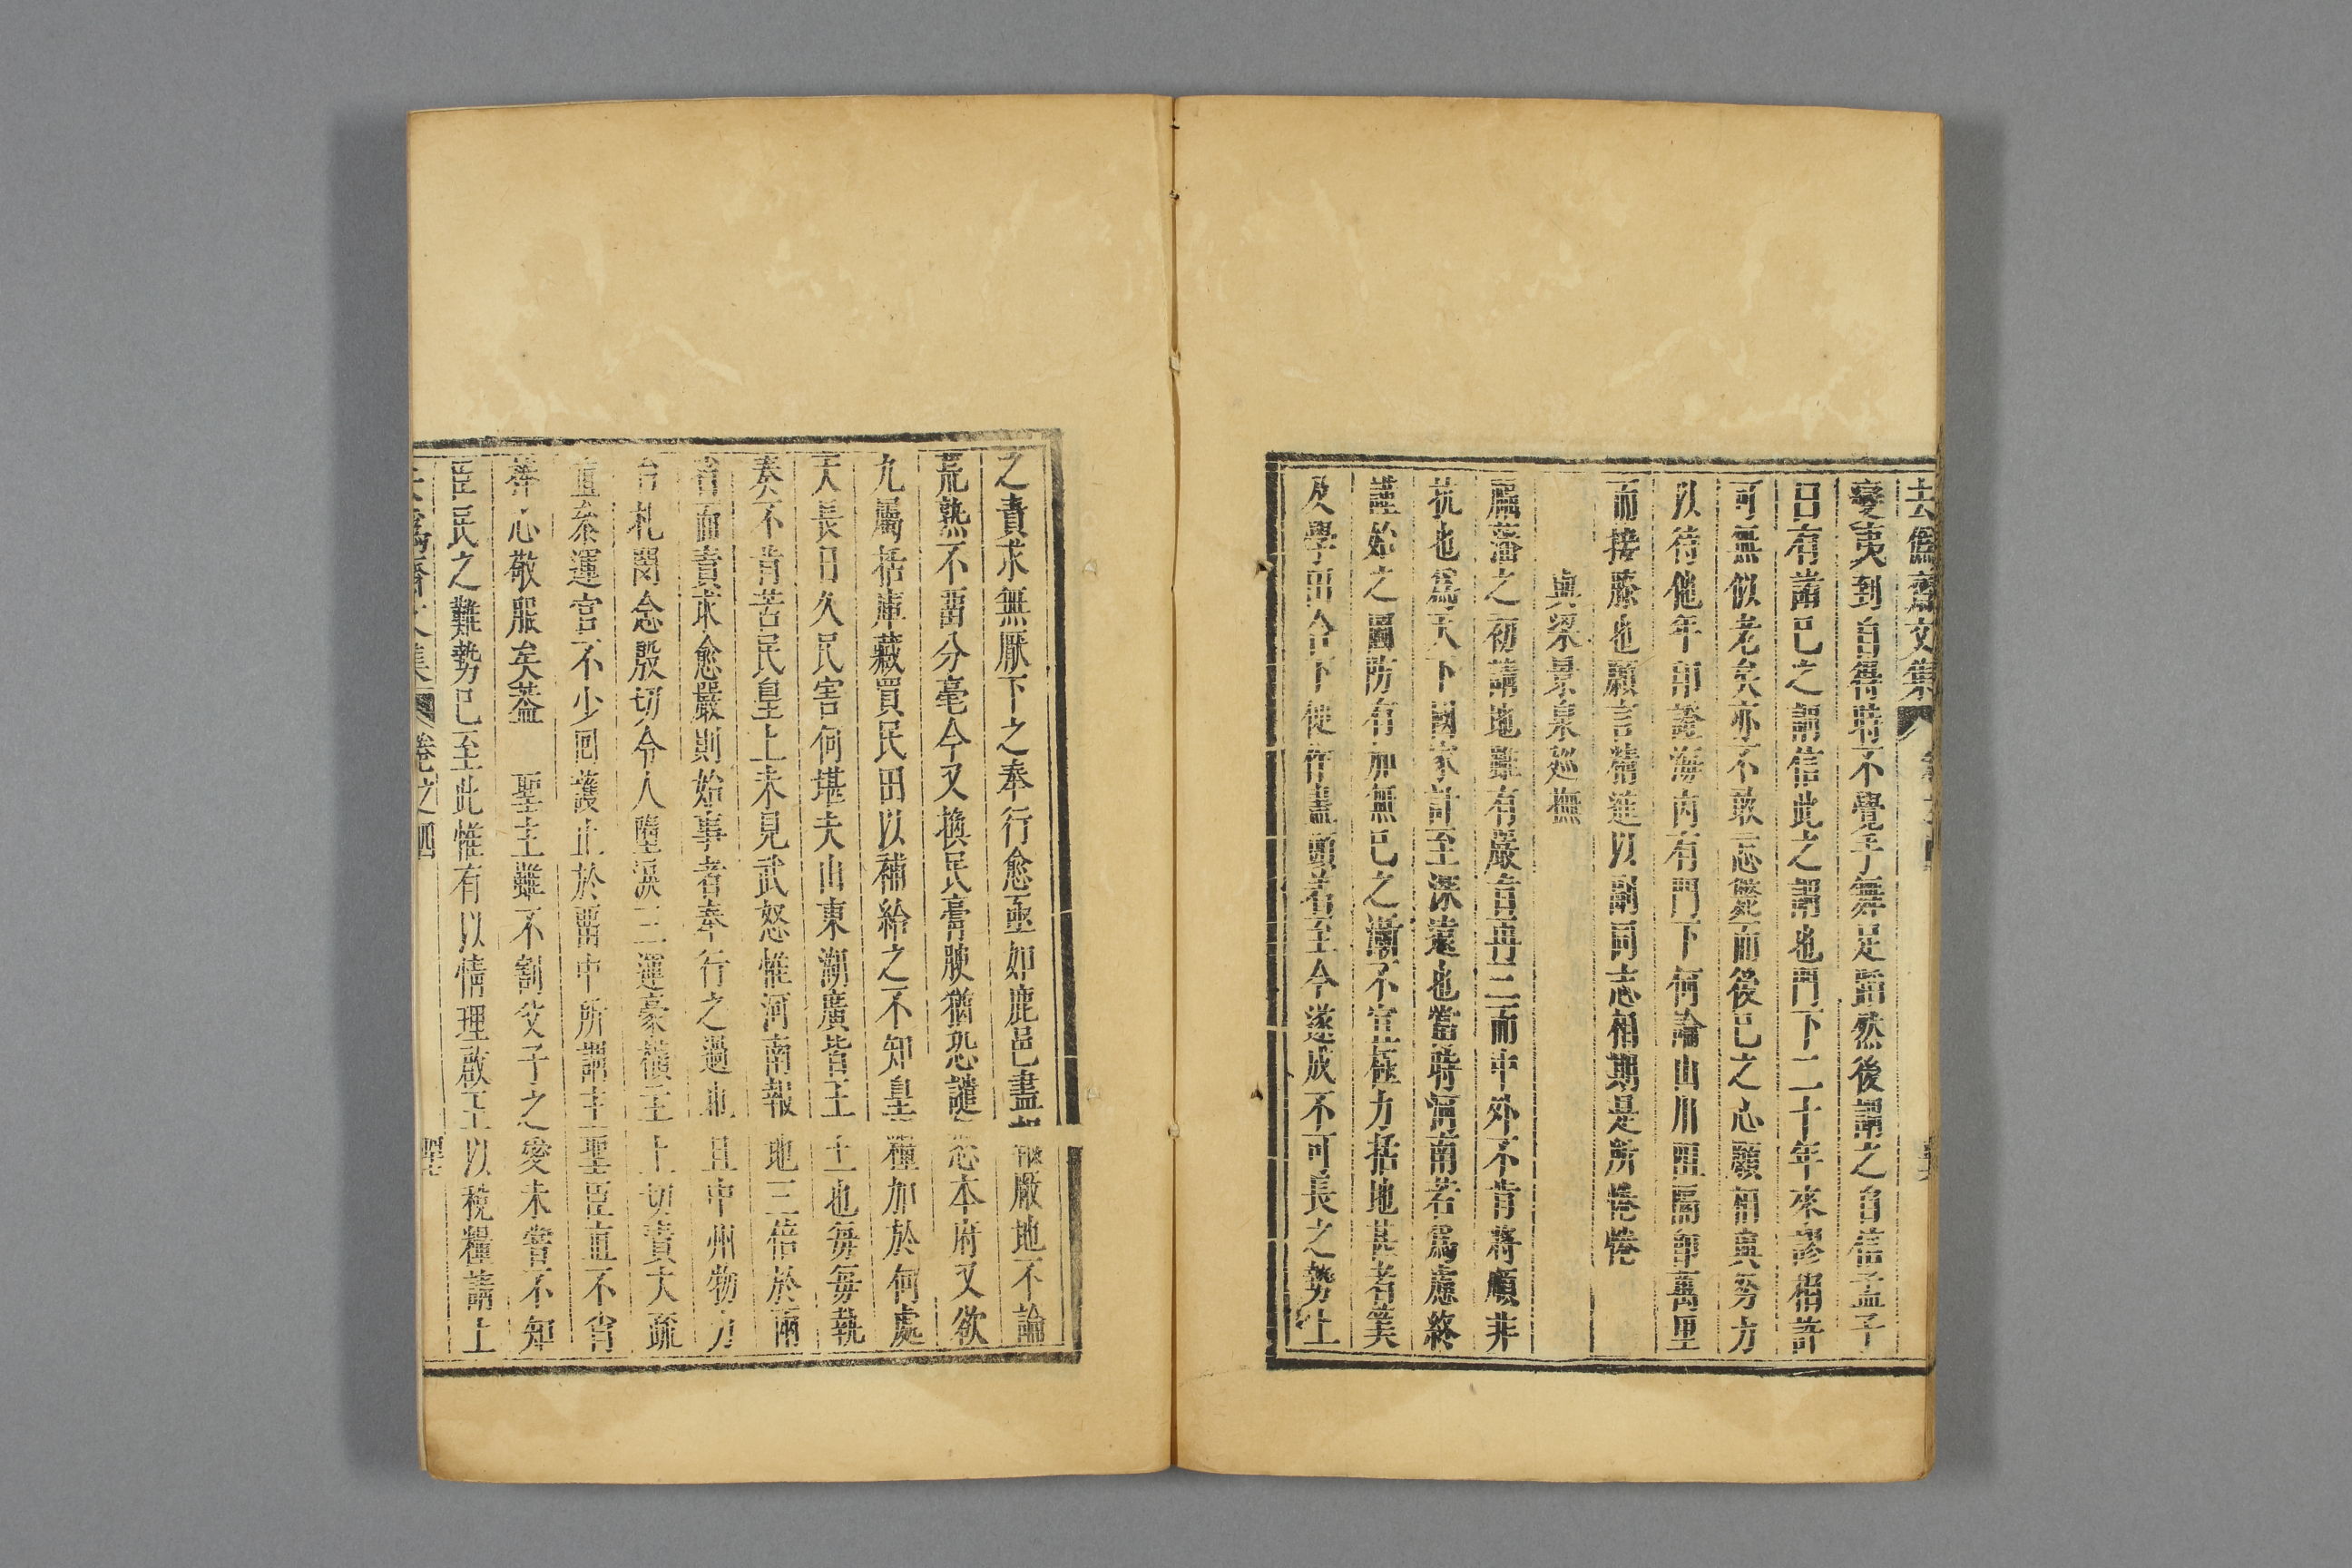 去僞齋文集
憂夷到自得時不覺手舞足蹈然後謂之自信孟子
曰有諸己之謂信此之謂也門下二十年來謬相許
可無似老矣亦不敢忘斃而後已之心願相與努力
以待他年印證海內有門下何論山川阻隔即萬里
而接膝也願言精進以副同志相期是所惓惓
與梁景泉巡撫
屬藩之初請地雖有嚴旨再三而中外不肯將順非
抗也爲天下國家計至深遠也當時河南若爲慮終
謹始之圖防有加無已之漸不宜極力括地甚者筭
及學田含下徒作盡頭着至今遂成不可長之勢上
之責求無厭下之奉行愈亟如鹿邑盡 廠地不論
荒熟不畱分毫今又換民膏腴猶恐謎 恣本府又欲
九屬括庫藏買民田以補給之不知皇糧加於何處
天長日久民害何堪夫山東湖廣皆王土也每每執
奏不肯苦民皇上未見武怒惟河南報地三倍於兩
省而責求愈嚴則始事者奉行之過也且中州物力
台札閔念殷切令人墮淚三運豪橫至 切責大疏
直叅運官不少回護止於畱中所謂主聖臣直不肯
葬心敬服矣葢 聖主雖不割父子之愛未嘗不知
臣民之難勢已至此惟有以情理啟王以稅糧請上
去僞齋文集 卷之四